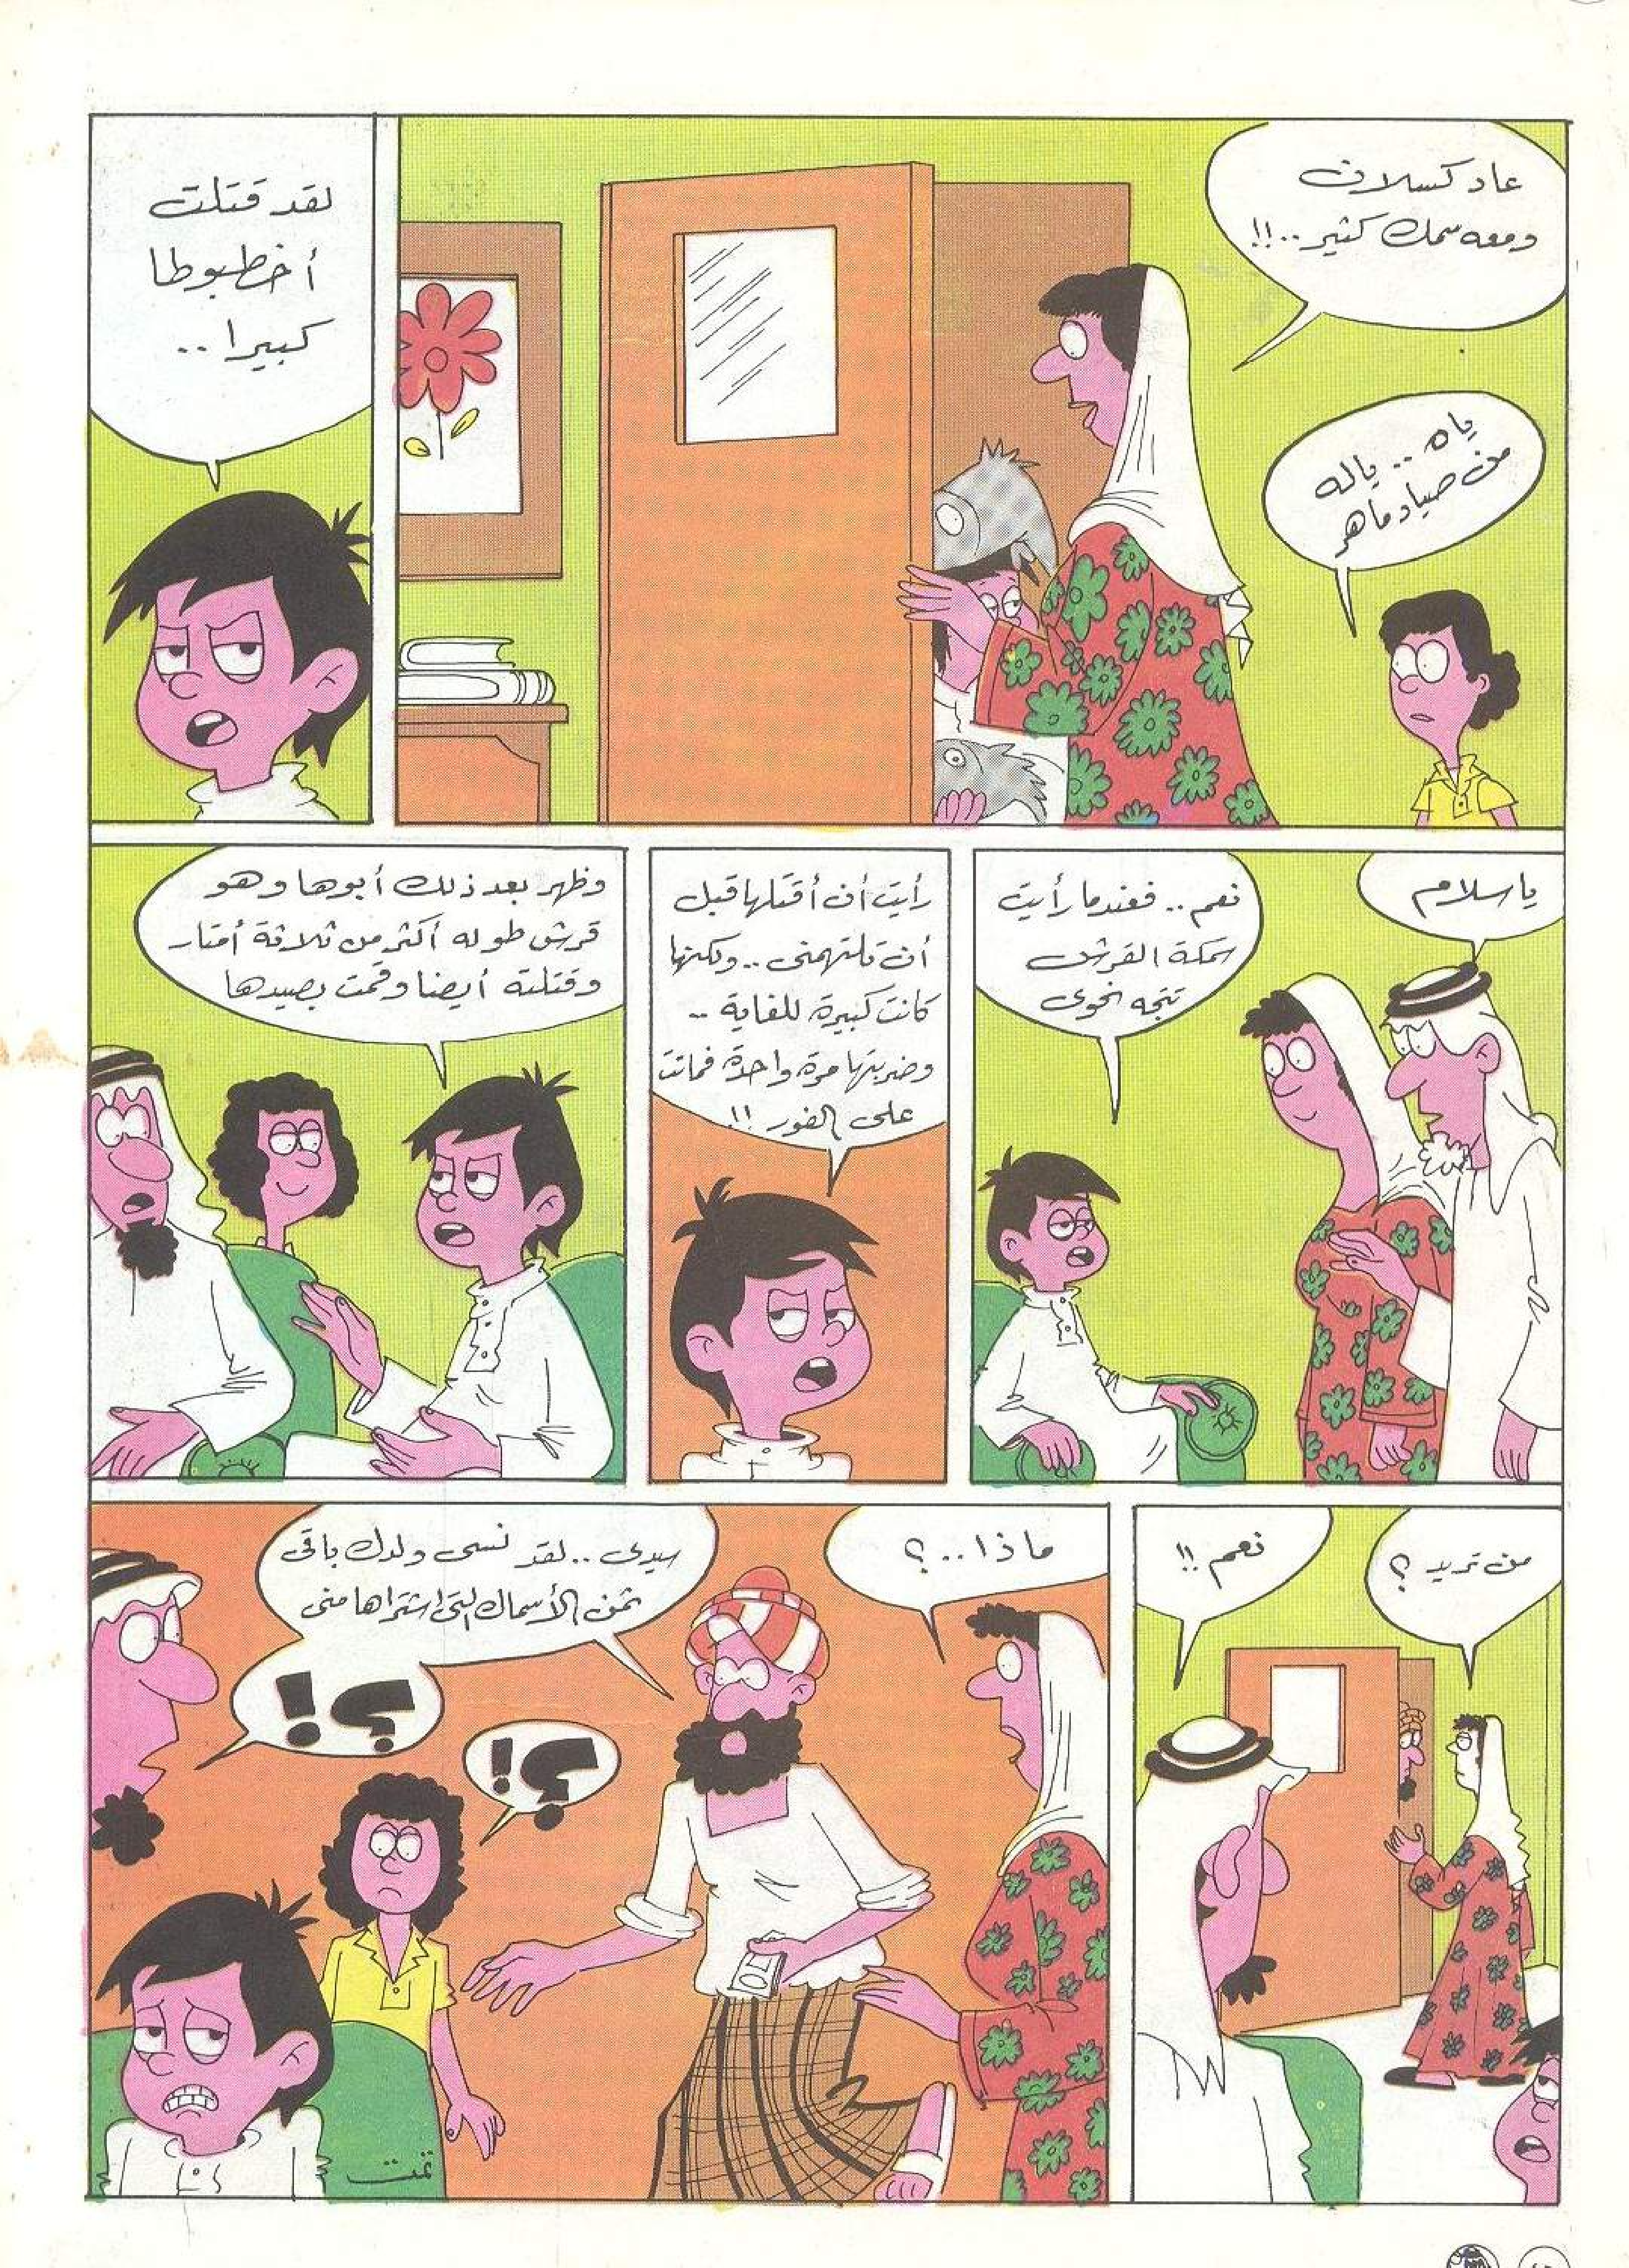 عاد كسلان
ومعه سمك كثير..!!
ياه .. ياله
من صياد ماهر
لقد قتلت
أخطبوطا
كبيرا ..
ياسلام
نعم .. فعندما رأيت
سمكة القرش
تتجه نحوى
رأيت أن أقتلها قبل
أن تلتهمنى .. ولكنها
كانت كبيرة للغاية ..
وضربتها مرة واحدة فماتت
على الفور !!
وظهر بعد ذلك أبوها وهو
قرش طوله أكثر من ثلاثة أمتار
وقتلته أيضا وقمت بصيدها
من تريد ؟
نعم !!
ماذا .. ؟
سيدى .. لقد نسى ولدك باقى
ثمن الأسماك التى اشتراها منى
؟!
؟!
تمت